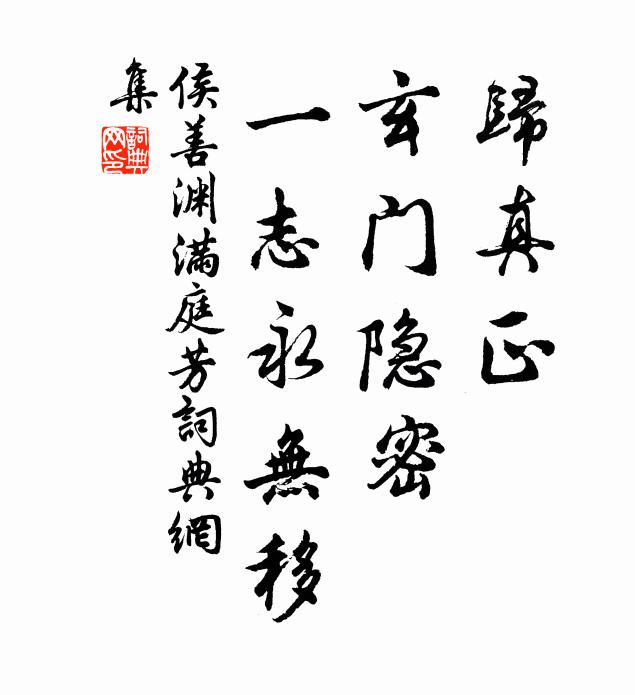 歸真正
玄門隐密
一志永無移
侯善渊满庭芳詞典網
集
詞典网印